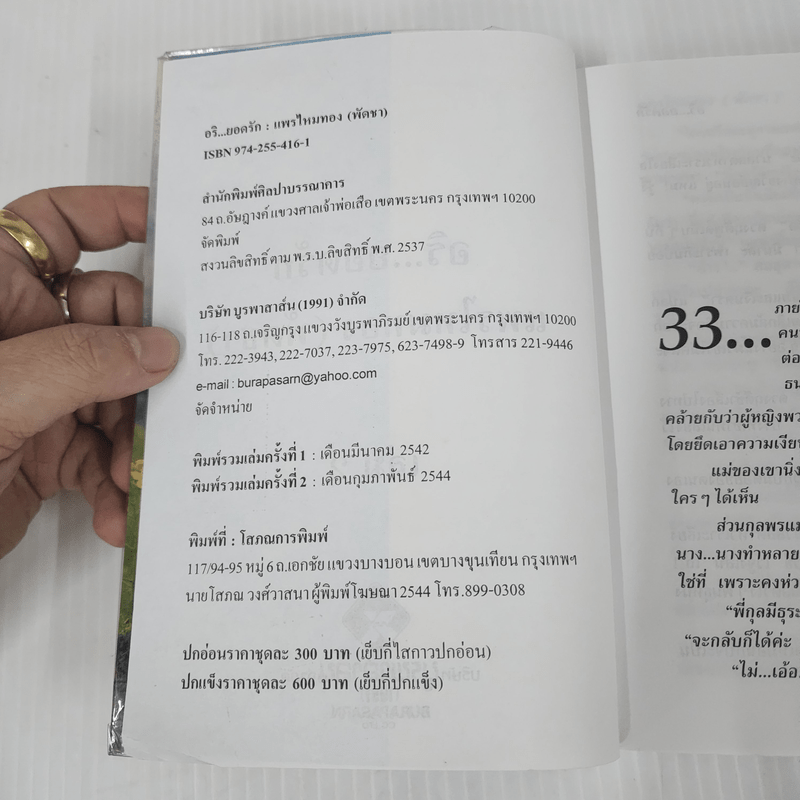 อริ...ยอดรัก : แพรไหมทอง (พัดชา)
ISBN 974-255-416-1
สำนักพิมพ์ศิลปาบรรณาคาร
84 ถ.อัษฎางค์ แขวงศาลเจ้าพ่อเสือ เขตพระนคร กรุงเทพฯ 10200
จัดพิมพ์
สงวนลิขสิทธิ์ ตาม พ.ร.บ.ลิขสิทธิ์ พ.ศ. 2537
บริษัท บูรพาสาส์น (1991) จำกัด
116-118 ถ.เจริญกรุง แขวงวังบูรพาภิรมย์ เขตพระนคร กรุงเทพฯ 10200
โทร. 222-3943, 222-7037, 223-7975, 623-7498-9 โทรสาร 221-9446
e-mail : burapasarn@yahoo.com
จัดจำหน่าย
พิมพ์รวมเล่มครั้งที่ 1 : เดือนมีนาคม 2542
พิมพ์รวมเล่มครั้งที่ 2 : เดือนกุมภาพันธ์ 2544
พิมพ์ที่ : โสภณการพิมพ์
117/94-95 หมู่ 6 ถ.เอกชัย แขวงบางบอน เขตบางขุนเทียน กรุงเทพฯ
นายโสภณ วงศ์วาสนา ผู้พิมพ์โฆษณา 2544 โทร. 899-0308
ปกอ่อนราคาชุดละ 300 บาท (เย็บกี่ไสกาวปกอ่อน)
ปกแข็งราคาชุดละ 600 บาท (เย็บกี่ปกแข็ง)
33...
คล้ายกับว่าผู้หญิงพว
โดยยึดเอาความเงียบ
แม่ของเขานิ่ง
ใคร ๆ ได้เห็น
ส่วนกุลพรแม่
นาง...นางทำหลาย
ใช่ที่ เพราะคงห่ว
“พี่กุลมีธุระ
“จะกลับก็ได้ค่ะ
“ไม่...เอ้อ.